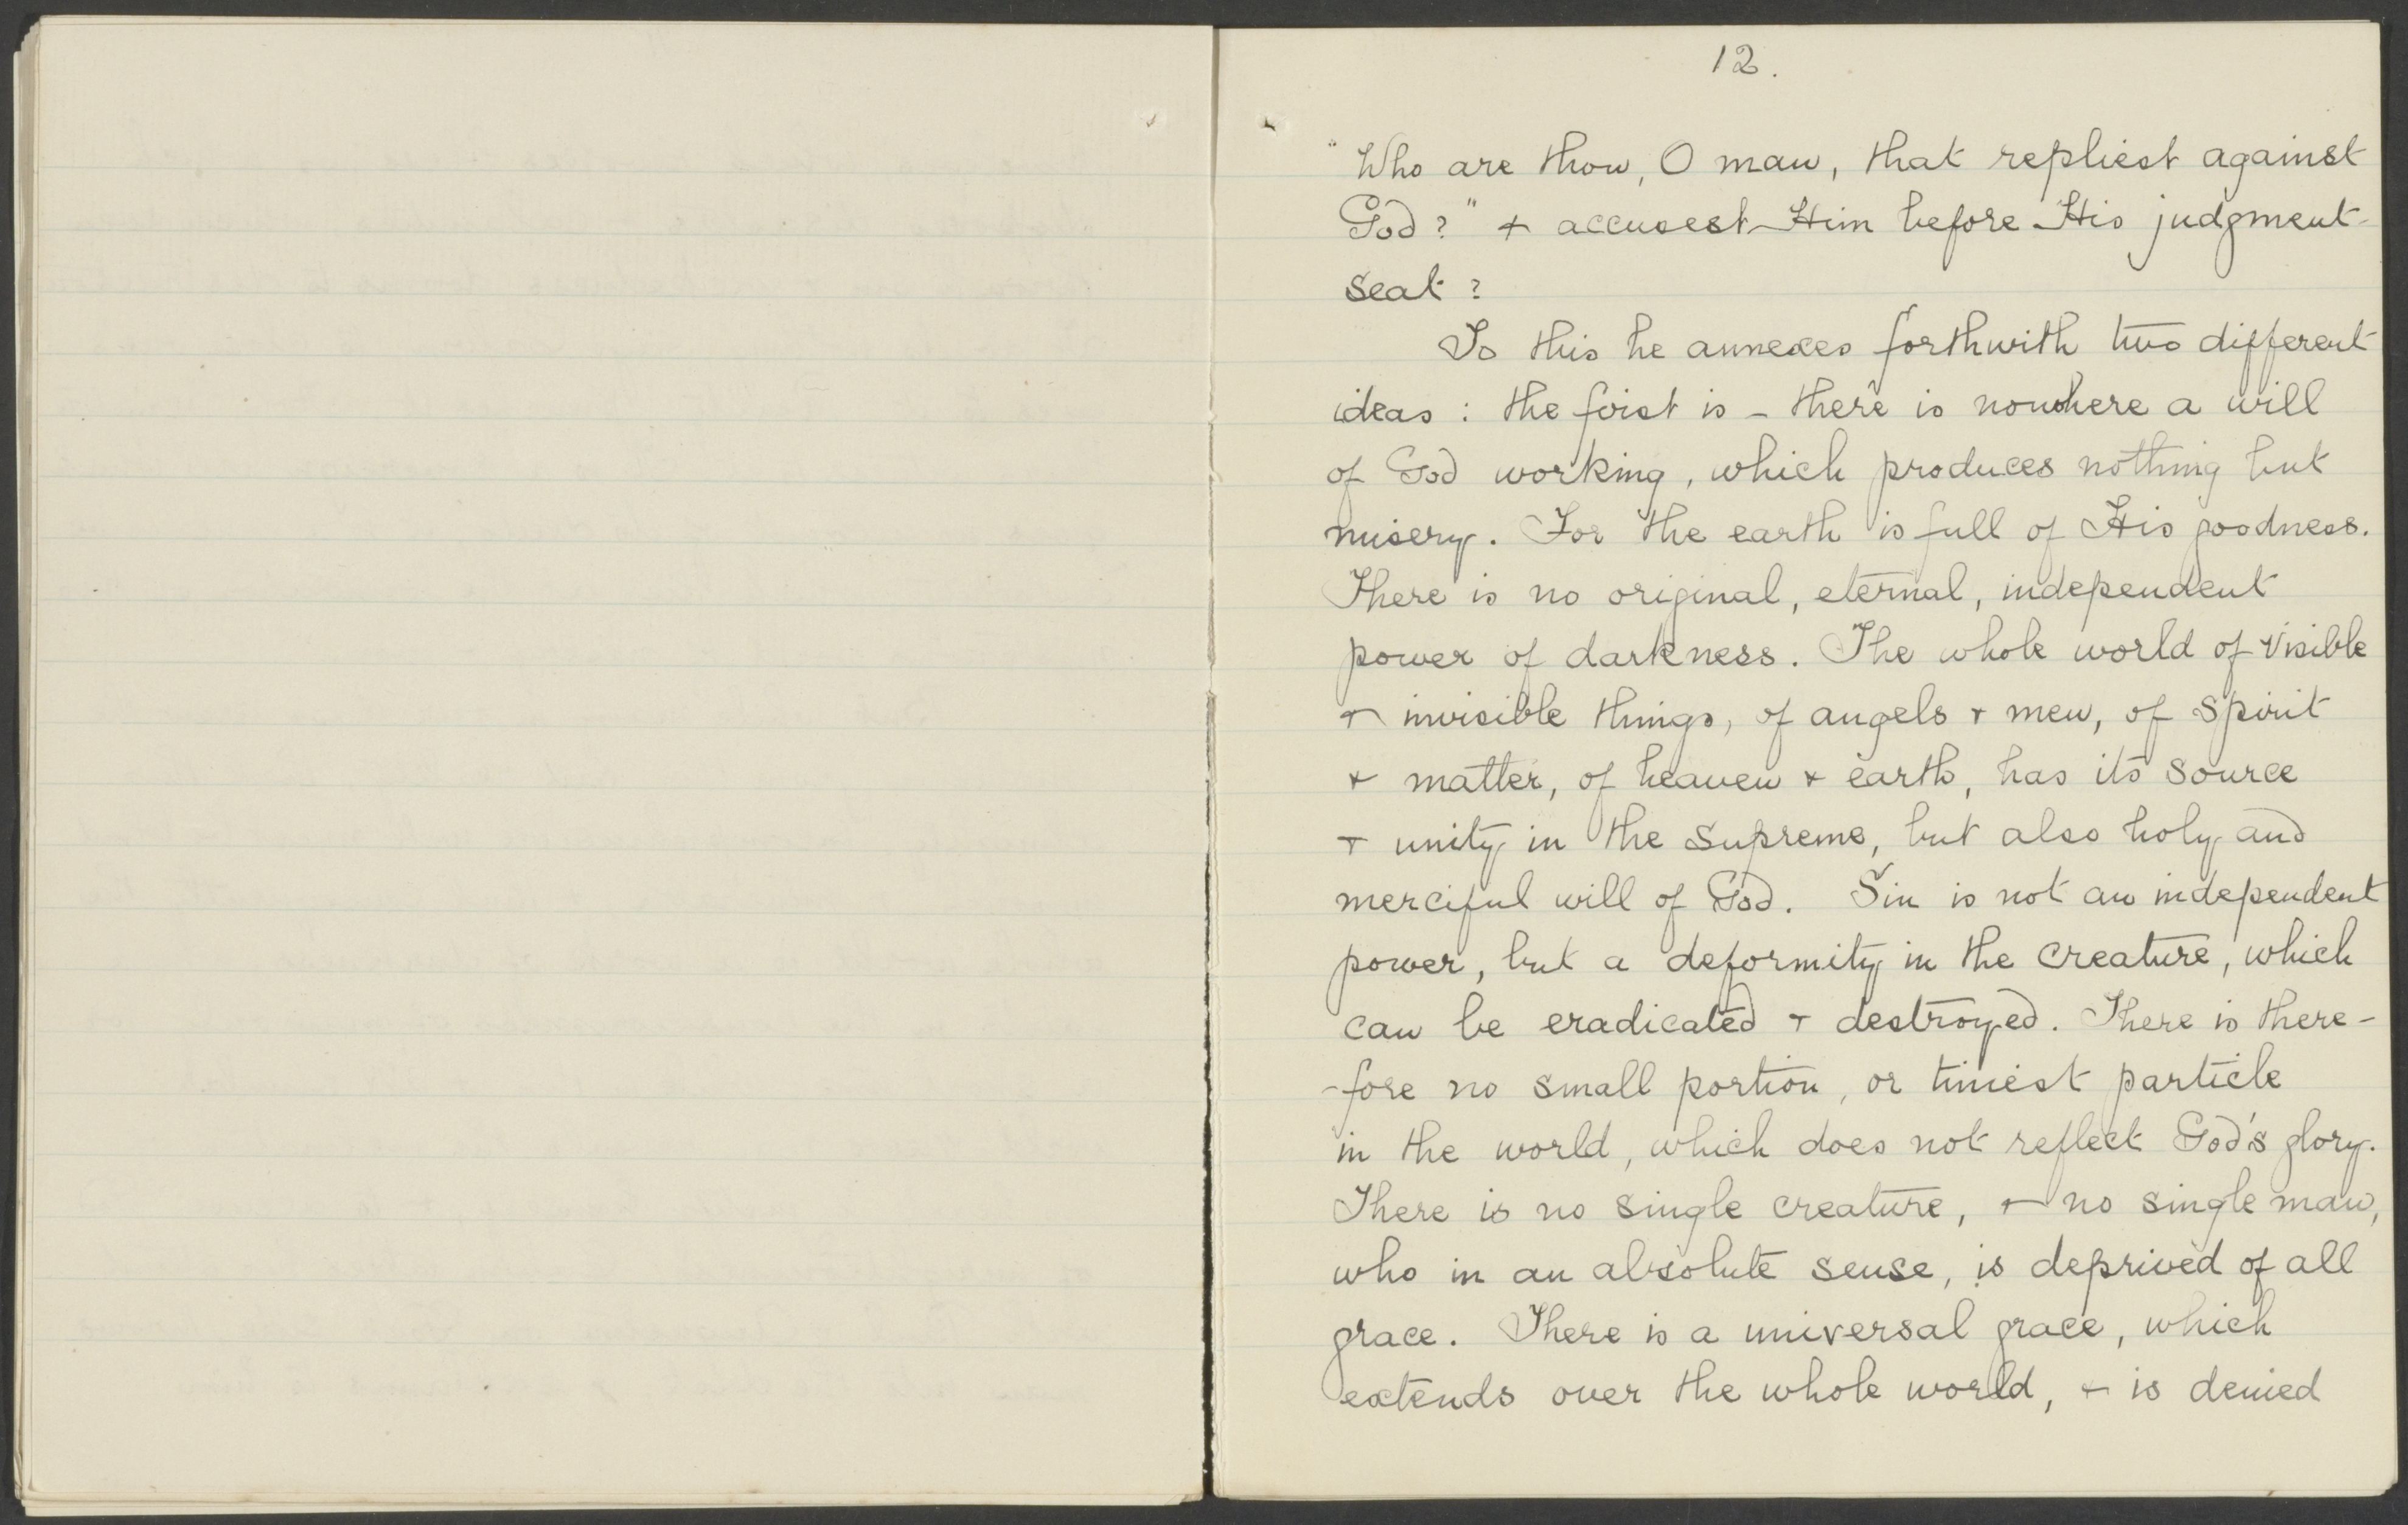 12.
"Who are thou, O man, that repliest against
God?" & accusest Him before His judgment-
seat?
To this he annexes forthwith two different
ideas: the first is - there is nowhere a will
of God working, which produces nothing but
misery. For the earth is full of His goodness.
There is no original, eternal, independent
power of darkness. The whole world of visible
& invisible things, of angels & men, of spirit
& matter, of heaven & earth, has its source
& unity in the supreme, but also holy and
merciful will of God. Sin is not an independent
power, but a deformity in the creature, which
can be eradicated & destroyed. There is there-
-fore no small portion, or tiniest particle
in the world, which does not reflect God's glory.
There is no single creature, & no single man,
who in an absolute sense, is deprived of all
grace. There is a universal grace, which
extends over the whole world, & is denied